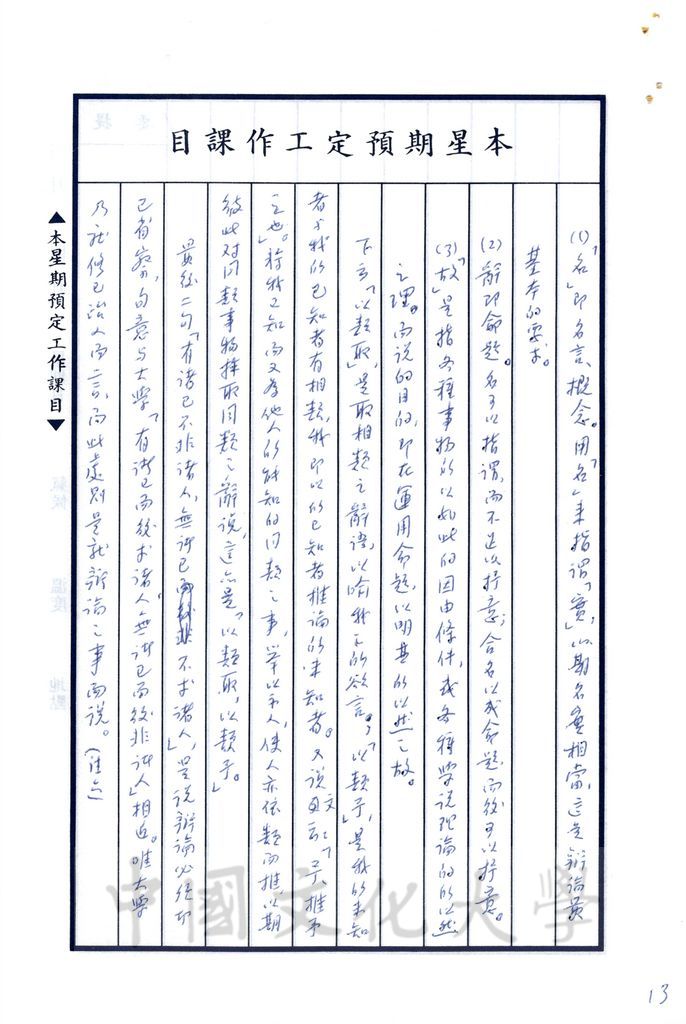 本星期預定工作課目
(1)「名」即名言、概念。用「名」來指謂「實」，以期名實相當，這是辯論最
基本的要求。
(2)辭即命題。名可以指謂，而不足以抒意；合名以成命題，而後可以抒意。
(3)「故」是指各種事物所以如此的因由條件，或各種學說理論的所以然
之理。而說的目的，即在運用命題，以明其所以然之故。
下言「以類取」，是取相類之辭語，以喻我之所欲言。「以類予」，是我的未知
者與我的已知者有相類，我即以所已知者推論所未知者。又說文云：「予，推予
之也。」將我已知而又為他人所能知的同類之事，舉以示人，使人亦依類而推，以期
彼此对同類事物擇取同類之辭說，這亦是「以類取，以類予。」
最後二句「有諸己不非諸人，無諸己不求諸人」，是說辯論必須
已省察，句意与大學「有諸己而後求諸人，無諸己而後非諸人」相近。唯大學
乃就修己治人而言，而此處則是就辯論之事而說。
▲本星期預定工作課目▼
中國文化大學
13